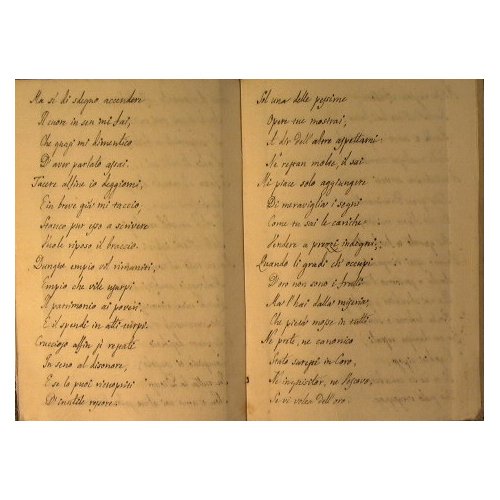 Ma sì di sdegno accendere
Il cuore in sen mi fai,
Che quasi mi dimentico
D'aver parlato assai.
Tacere affine io deggiomi,
E in breve già mi taccio,
Stanco pur esso a scrivere
Vuole riposo il braccio.
Dunque empio vol
Empio che vile usurpi
Il patrimonio ai poveri,
E il spendi in atti turpi.
Cruccioso affin ti
In seno al disonore,
E se lo puoi
D'inutile
Sol una delle pessime
Opere tue mostrai,
A dir dell'altre aspettami
Ne restan molte, il sai
Mi piace solo aggiungere
Di meraviglia i segni
Come tu sai le cariche
Vendere a prezzi indegni;
Quando li gradi ch'occupi
D'oro non sono i frutti
Ma l'hai dalla miseria,
Che pietà mosse in tutti.
Ne prete, ne canonico
Stato saresti in Coro,
Ne inquisitor, ne Vescovo,
Se vi volea dell'oro.